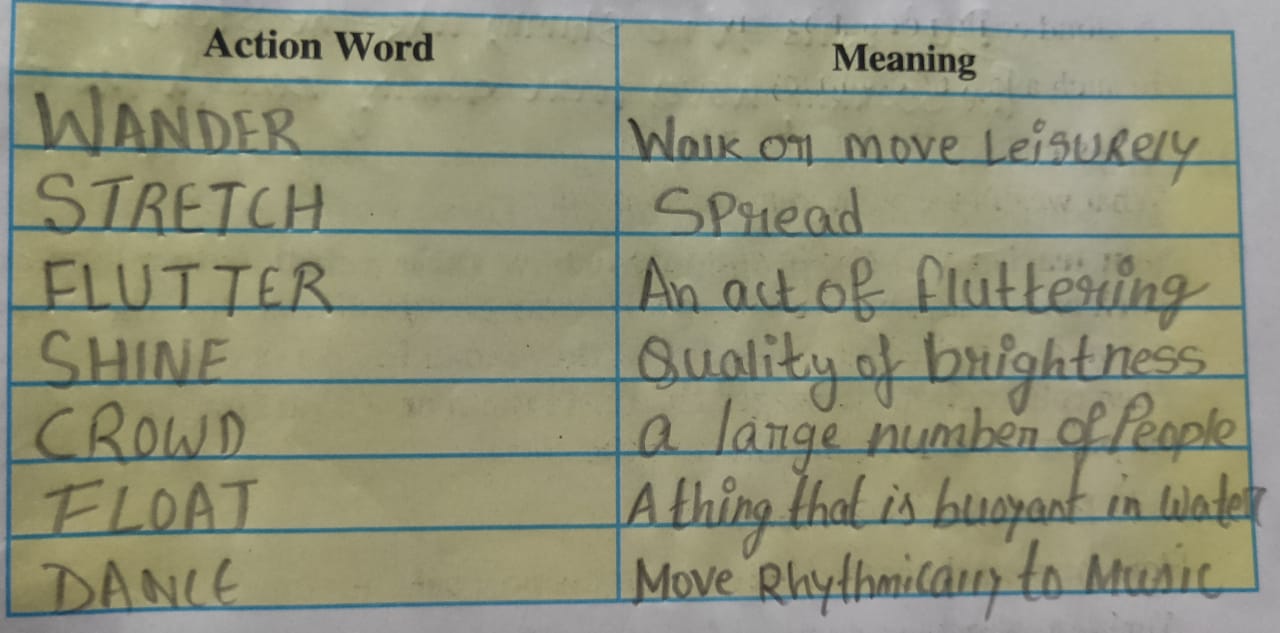 Action Word Meaning
WANDER Walk or move Leisurely
STRETCH Spread
FLUTTER An act of fluttering
SHINE Quality of brightness
CROWD a large number of People
FLOAT A thing that is buoyant in water
DANCE Move Rhythmically to Music